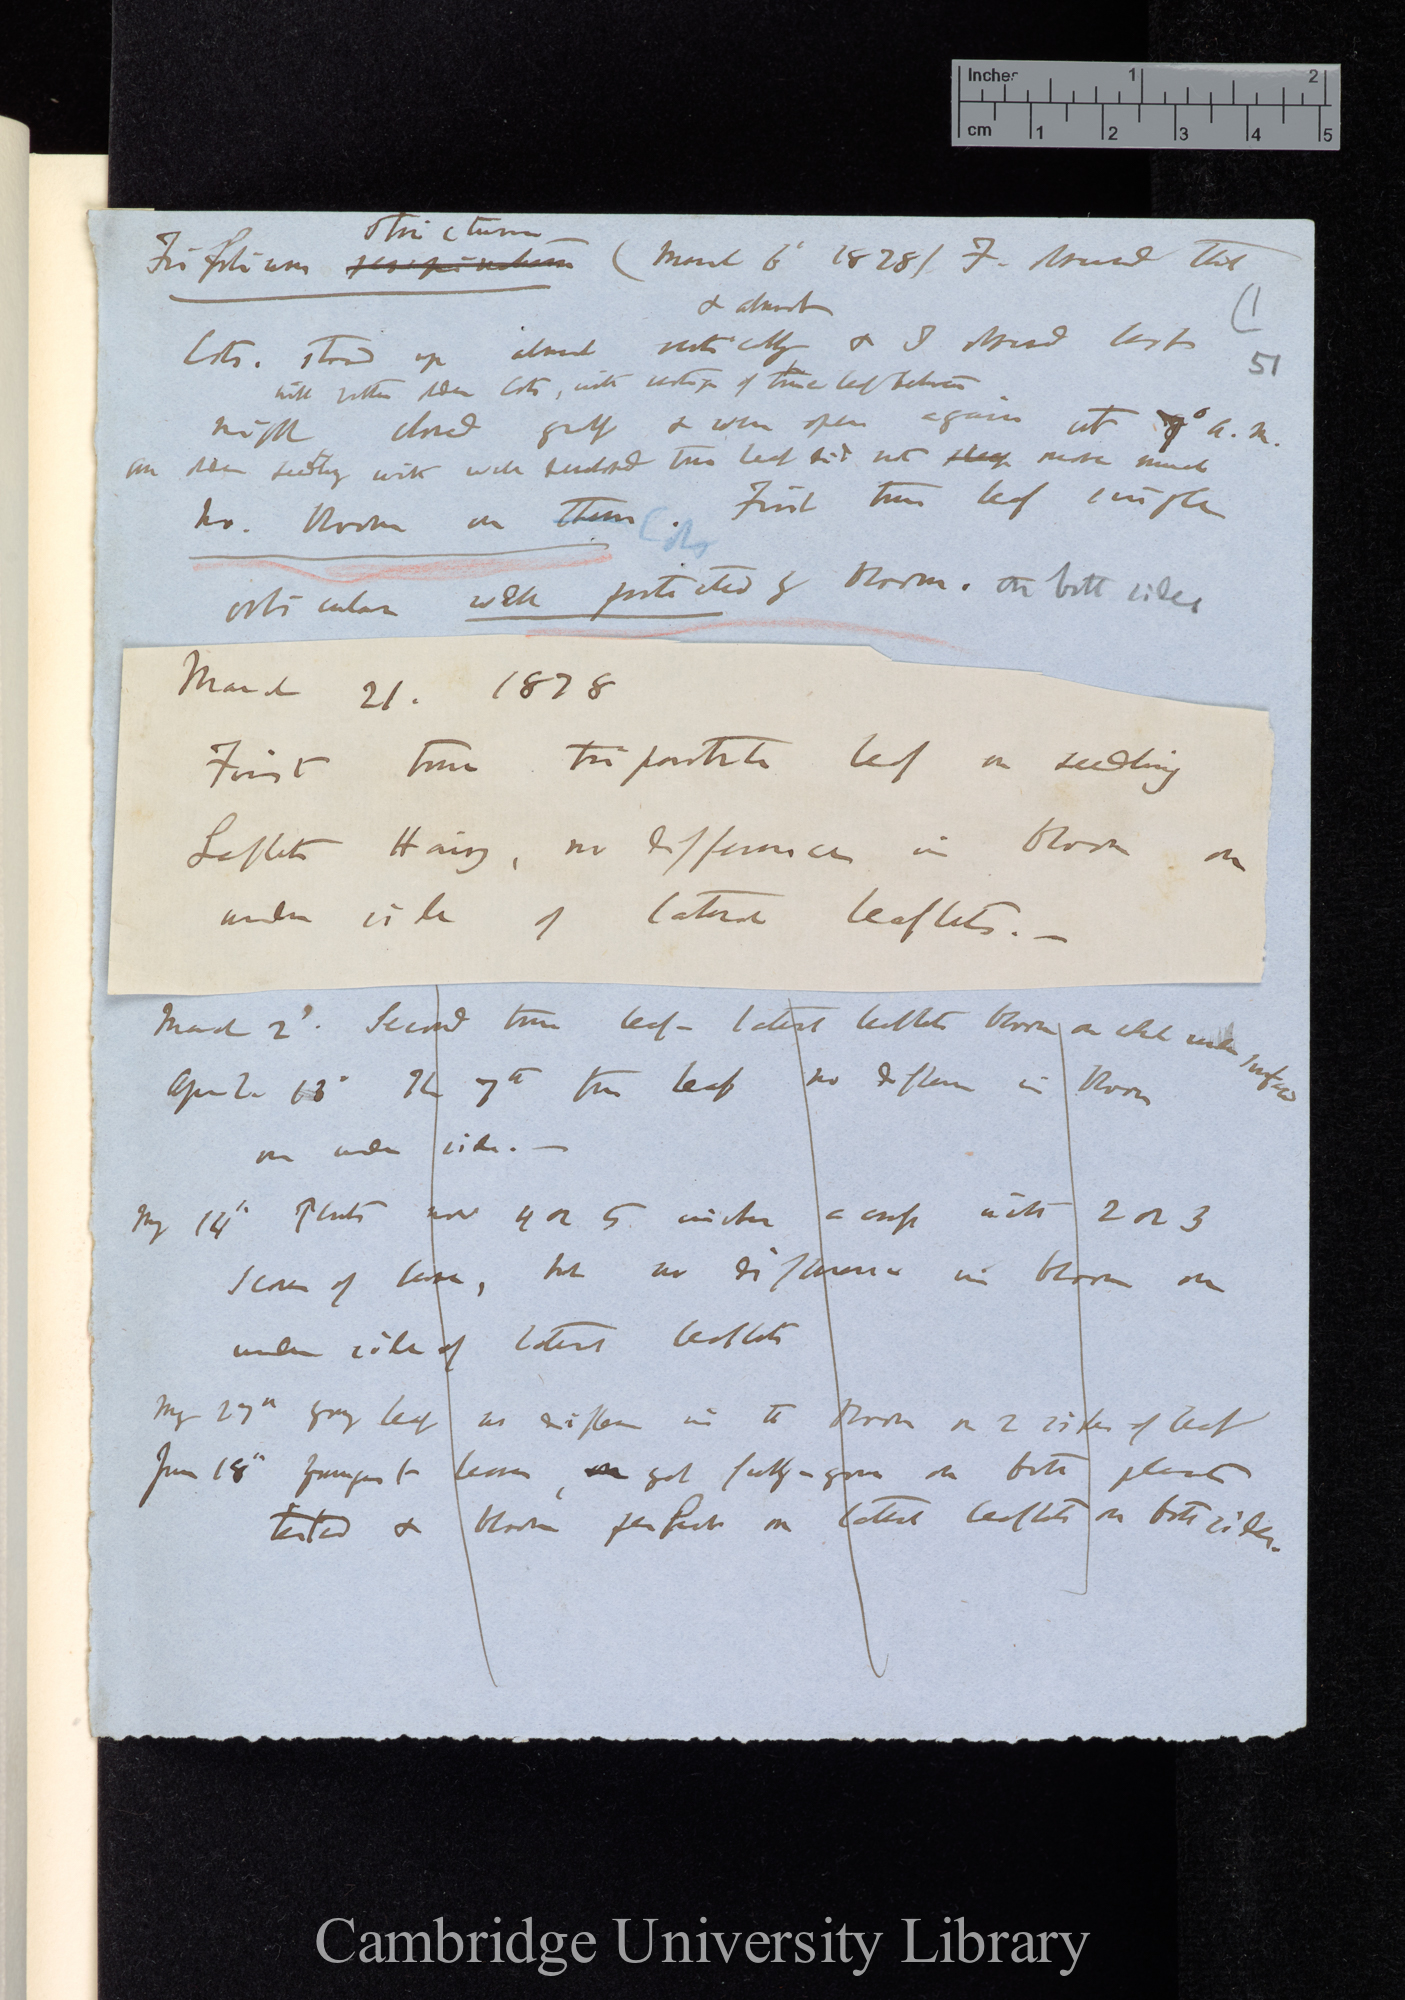 Inches 1 2
cm 1 2 3 4 5
strictum
Trifolium resupinatum (March 6' 1878) F. observed that
(1
& almost
51
Cots. stood up almost vertically & I observed last
with rather older Cots, with vestige of true leaf between
night closed quite & were open again at 7° a.m.
an older seedling with well developed true leaf did not sleep move much
no. bloom on them. Cots First true leaf simple
orbicular well protected by bloom. on both sides
March 21. 1878
First true tripartite leaf on seedling
Leaflets Hairy, no difference in bloom on
under side of lateral leaflets. —
March 2 . Second true leaf — lateral leaflets bloom on whole under surface
April 13° The 7th true leaf no difference in bloom
on under side. —
May 14th Plants now 4 or 5 inches across with 2 or 3
scores of leaves, but no difference in bloom on
under side of lateral leaflets
May 27th young leaf no difference in the bloom on 2 sides of leaf
June 18th youngest leaves, got fully-grown on both plants
tested & bloom perfect on lateral leaflets on both sides.
Cambridge University Library